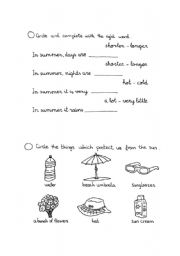 Circle and complete with the right word
shorter - longer
In summer, days are
shorter - longer
In summer, nights are
hot - cold
In summer it is very
a lot - very little
In summer it rains
Circle the things which protect us from the sun
water
beach umbrella
sunglasses
a bunch of flowers
hat
sun cream